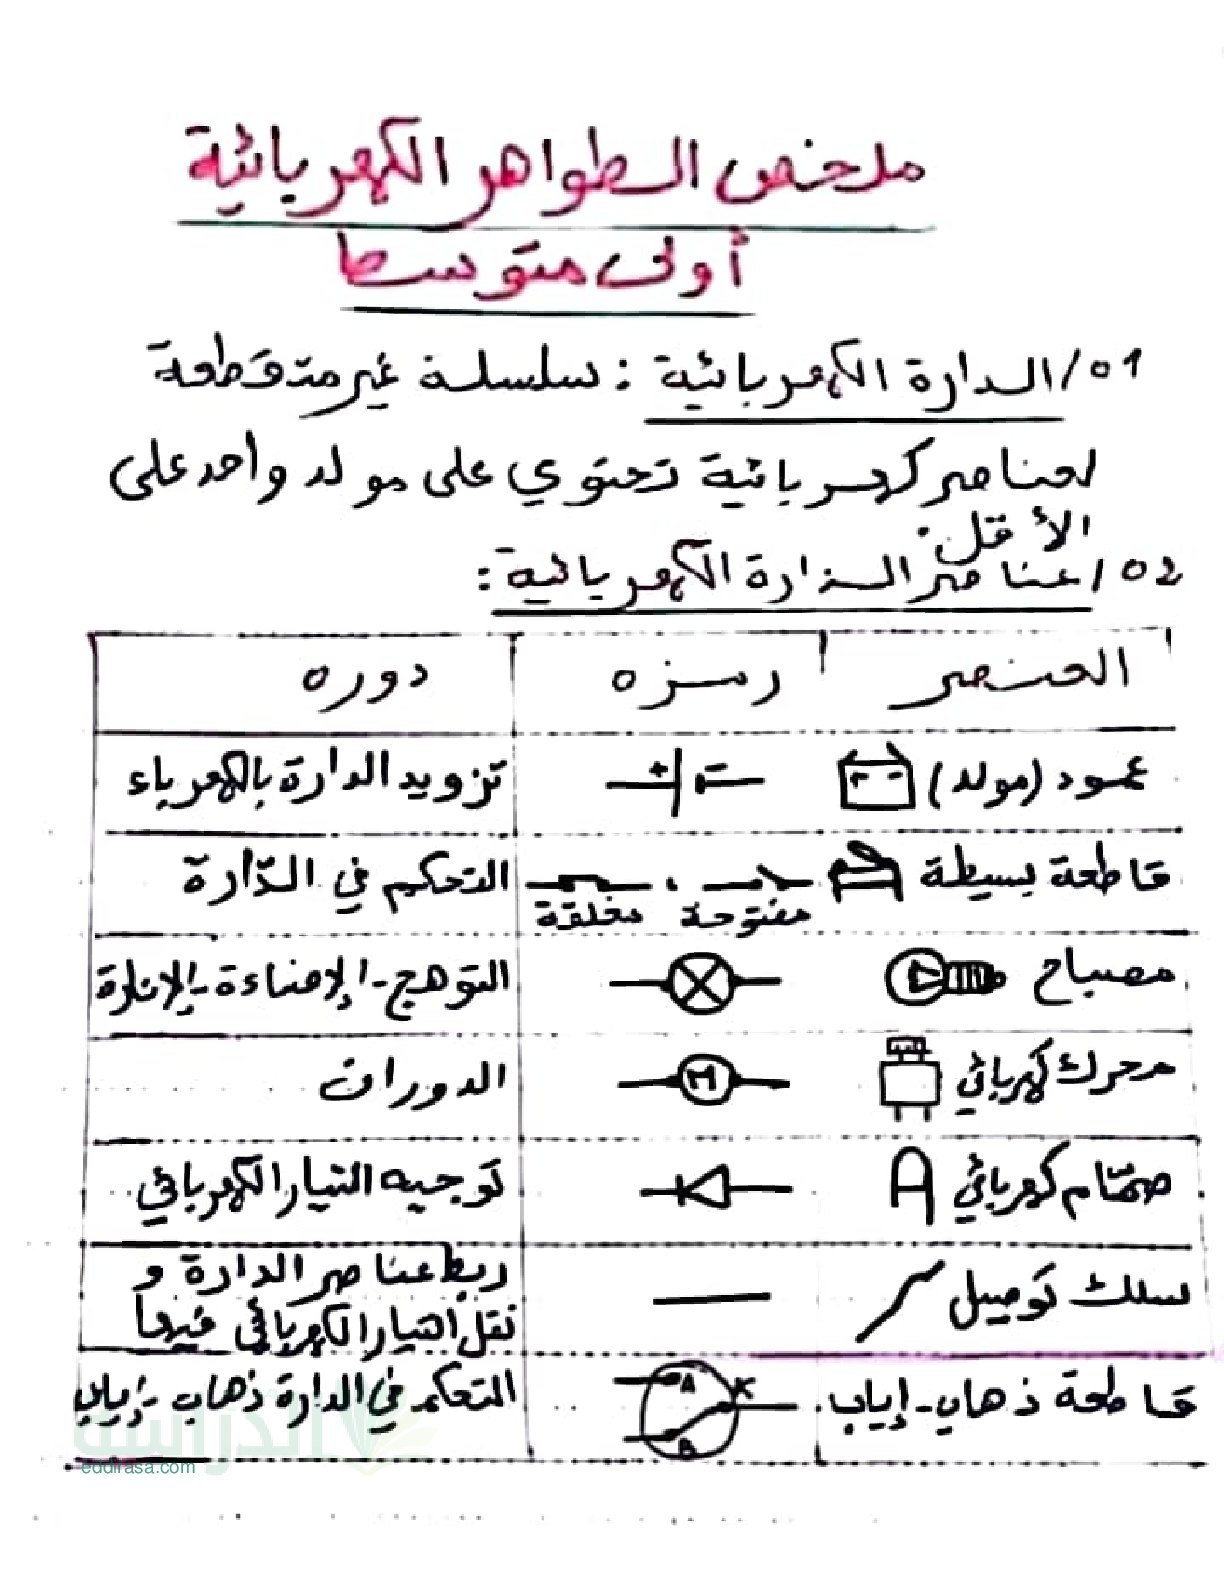 ملخص الظواهر الكهربائية
أولى متوسط
01/ الدارة الكهربائية : سلسلة غير متقطعة
لعناصر كهربائية تحتوي على مولد واحد على
الأقل.
02/ عناصر الدارة الكهربائية :
العنصر رمزه دوره
عمود (مولد) + - تزويد الدارة بالكهرباء
قاطعة بسيطة مفتوحة ، مغلقة التحكم في الدّارة
مصباح التوهج - الإضاءة - الإنارة
محرك كهربائي M الدوران
صمّام كهربائي توجيه التيار الكهربائي
سلك توصيل ربط عناصر الدارة و
نقل التيار الكهربائي فيها
قاطعة ذهاب - إياب. A K B التحكم في الدارة ذهاب - إياب
الدراسة
eddirasa.com